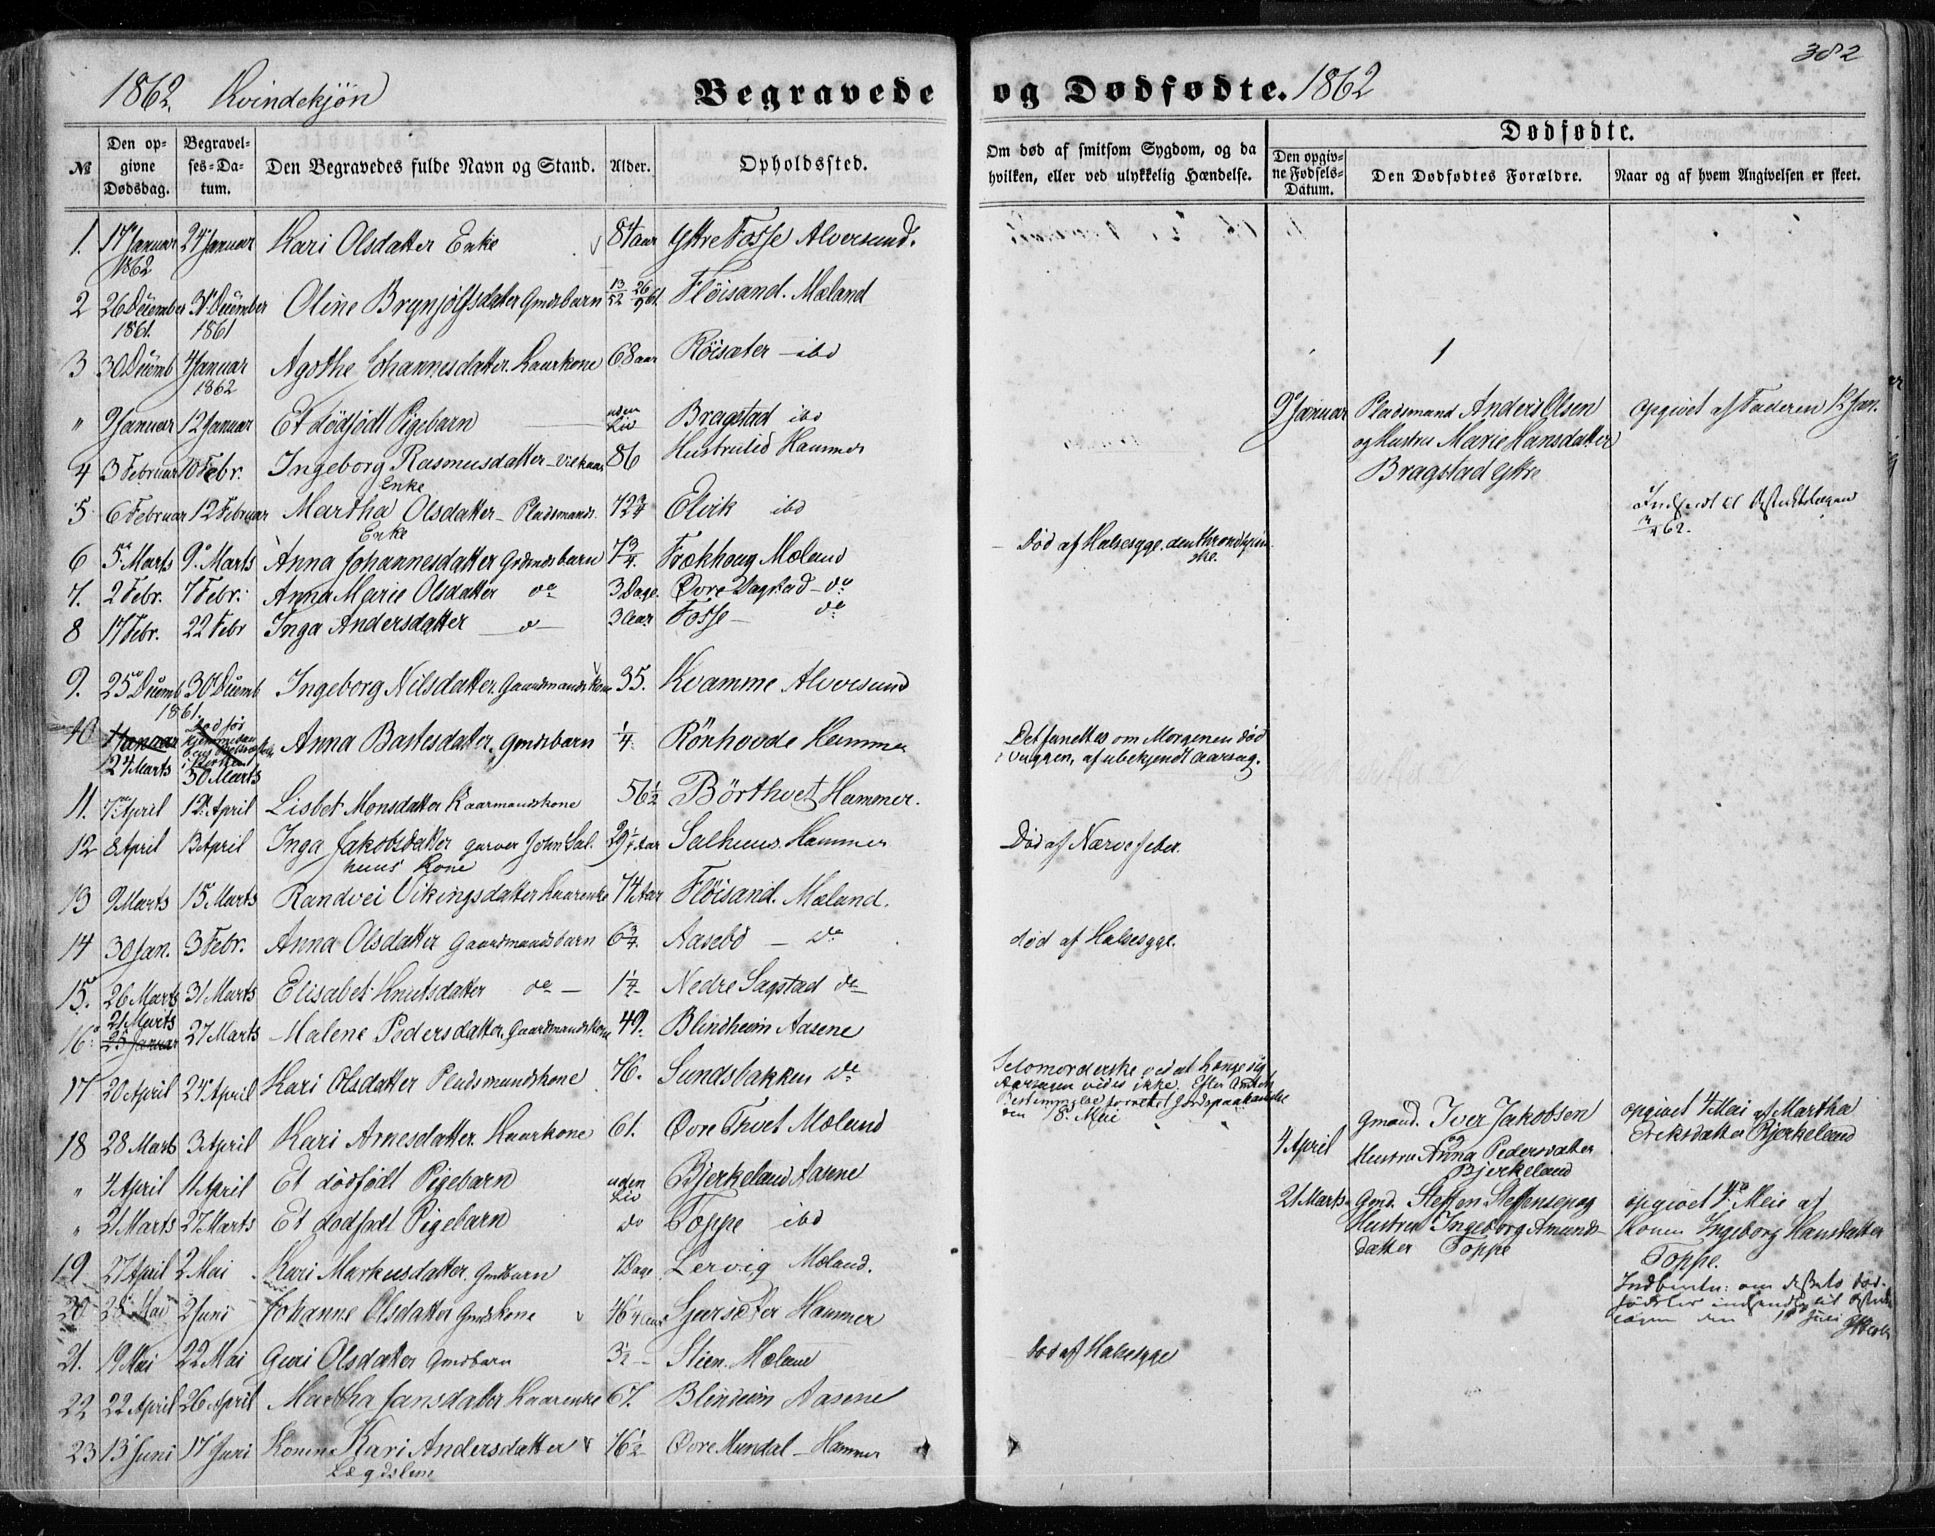 382
1862. Kvindekjøn Begravede og Dødfødte. 1862
№ Den opgivne Dødsdag. Begravelses-Datum. Den Begravedes fulde Navn og Stand. Alder. Opholdssted. Om død af smitsom Sygdom, og da hvilken, eller ved ulykkelig Hændelse. Dødfødte.
Den opgivne Fødsels-Datum. Den Dødfødtes Forældre. Naar og af hvem Angivelsen er skeet.
1. 17 Januar 1862 24 Januar Kari Olsdatter Enke 84 aar Ytre Fosse Alversund.
2 26 December 1861. 31 December 1861 Oline Brynjolfsdatter Gmdsbarn Flöisand. Mæland
3 30 Decemb 4 Januar 1862 Agothe Johannesdatter. Kaarkone 68 aar Röisæter ibd
" 9 Januar 12 Januar Et dödfödt Pigebarn uden Liv Bragstad ibd 9 Januar Pladsmand Anders Olsen og Hustru Marie Hansdatter Bragstad ytre opgivet af Faderen 12 Jan.
4 3 Februar 10 Febr. Ingeborg Rasmusdatter Enke 86 Hustrulid Hammer
5 6 Februar 12 Februar Martha Olsdatter Pladsmands Enke 72 Elvik ibd
6 5 Marts 9 Marts Anna Johannesdatter Gdmdsbarn 7 3/4. Frækhaug Mæland Död af Halsesyge
7. 2 Febr. 7 Febr. Anna Marie Olsdatter do 3 Dage. Øvre Sagstad do
8 17 Febr. 22 Febr Inga Andersdatter do 3 Aar Fosse do
9. 25 Decemb 1861. 30 Decemb Ingeborg Nilsdatter. Gaardmandskone 35. Kvamme Alversund
10 24 Marts 30 Marts Anna Bastesdatter. Gmdsbarn 1/4. Rörhovde Hammer Det fandtes om Morgenen död i Vuggen, af ubekjendt Aarsag.
11. 7 April 12 April Lisbet Monsdatter Kaarmandskone 56 1/2 Börthvet Hammer.
12 8 April 13 April Inga Jakobsdatter garver John Salhuus' Kone Salhuus. Hammer Död af Nærvefeber.
13 9 Marts 15 Marts Randvei Vikingsdatter Kaarenke 74 Aar Flöisand. Mæland.
14 30 Jan. 3 Febr. Anna Olsdatter Gaardmandsbarn 6 3/4. Aasebö do död af Halsesyge.
15. 26 Marts 31 Marts Elisabet Knutsdatter do Nedre Sagstad do
16. 21 Marts 27 Marts Malene Pedersdatter. Gaardmandskone 49. Blindheim Aasene
17 20 April 24 April Kari Olsdatter Pladsmandskone 46. Sundsbakken do Selvmorderske ved at hænge sig Aarsagen vides ikke.
18 28 Marts 3 April Kari Arnesdatter. Kaarkone 61. Øvre Thvet Mæland
" 4 April 11 April Et dödfödt Pigebarn uden Liv Bjerkeland Aasene 4 April Gmand. Iver Jakobsen og Hustru Anna Pedersdatter Bjerkeland opgivet 4 Mai af Martha Eriksdatter Bjerkeland
" 21 Marts 27 Marts Et dodfodt Pigebarn do Toppe ibd 21 Marts Gmd. Steffen Steffensen og Hustru Ingeborg Amundsdatter Toppe opgivet 4 Mai af Konen Ingeborg Hansdatter Toppe.
19 27 April 2 Mai Kari Markusdatter. Gmdbarn Lervig Mæland.
20 28 Mai 2 Juni Johanne Olsdatter Gmdskone Hammer
21. 19 Mai 22 Mai Guri Olsdatter Gmdbarn Steen. Mæland död af Halsesyge
22 22 April 26 April Martha Jansdatter Kaarenke 67. Blindheim Aasene
23 13 Juni 17 Juni Konen Kari Andersdatter Lægdslem 76 1/2 Øvre Mundal Hammer